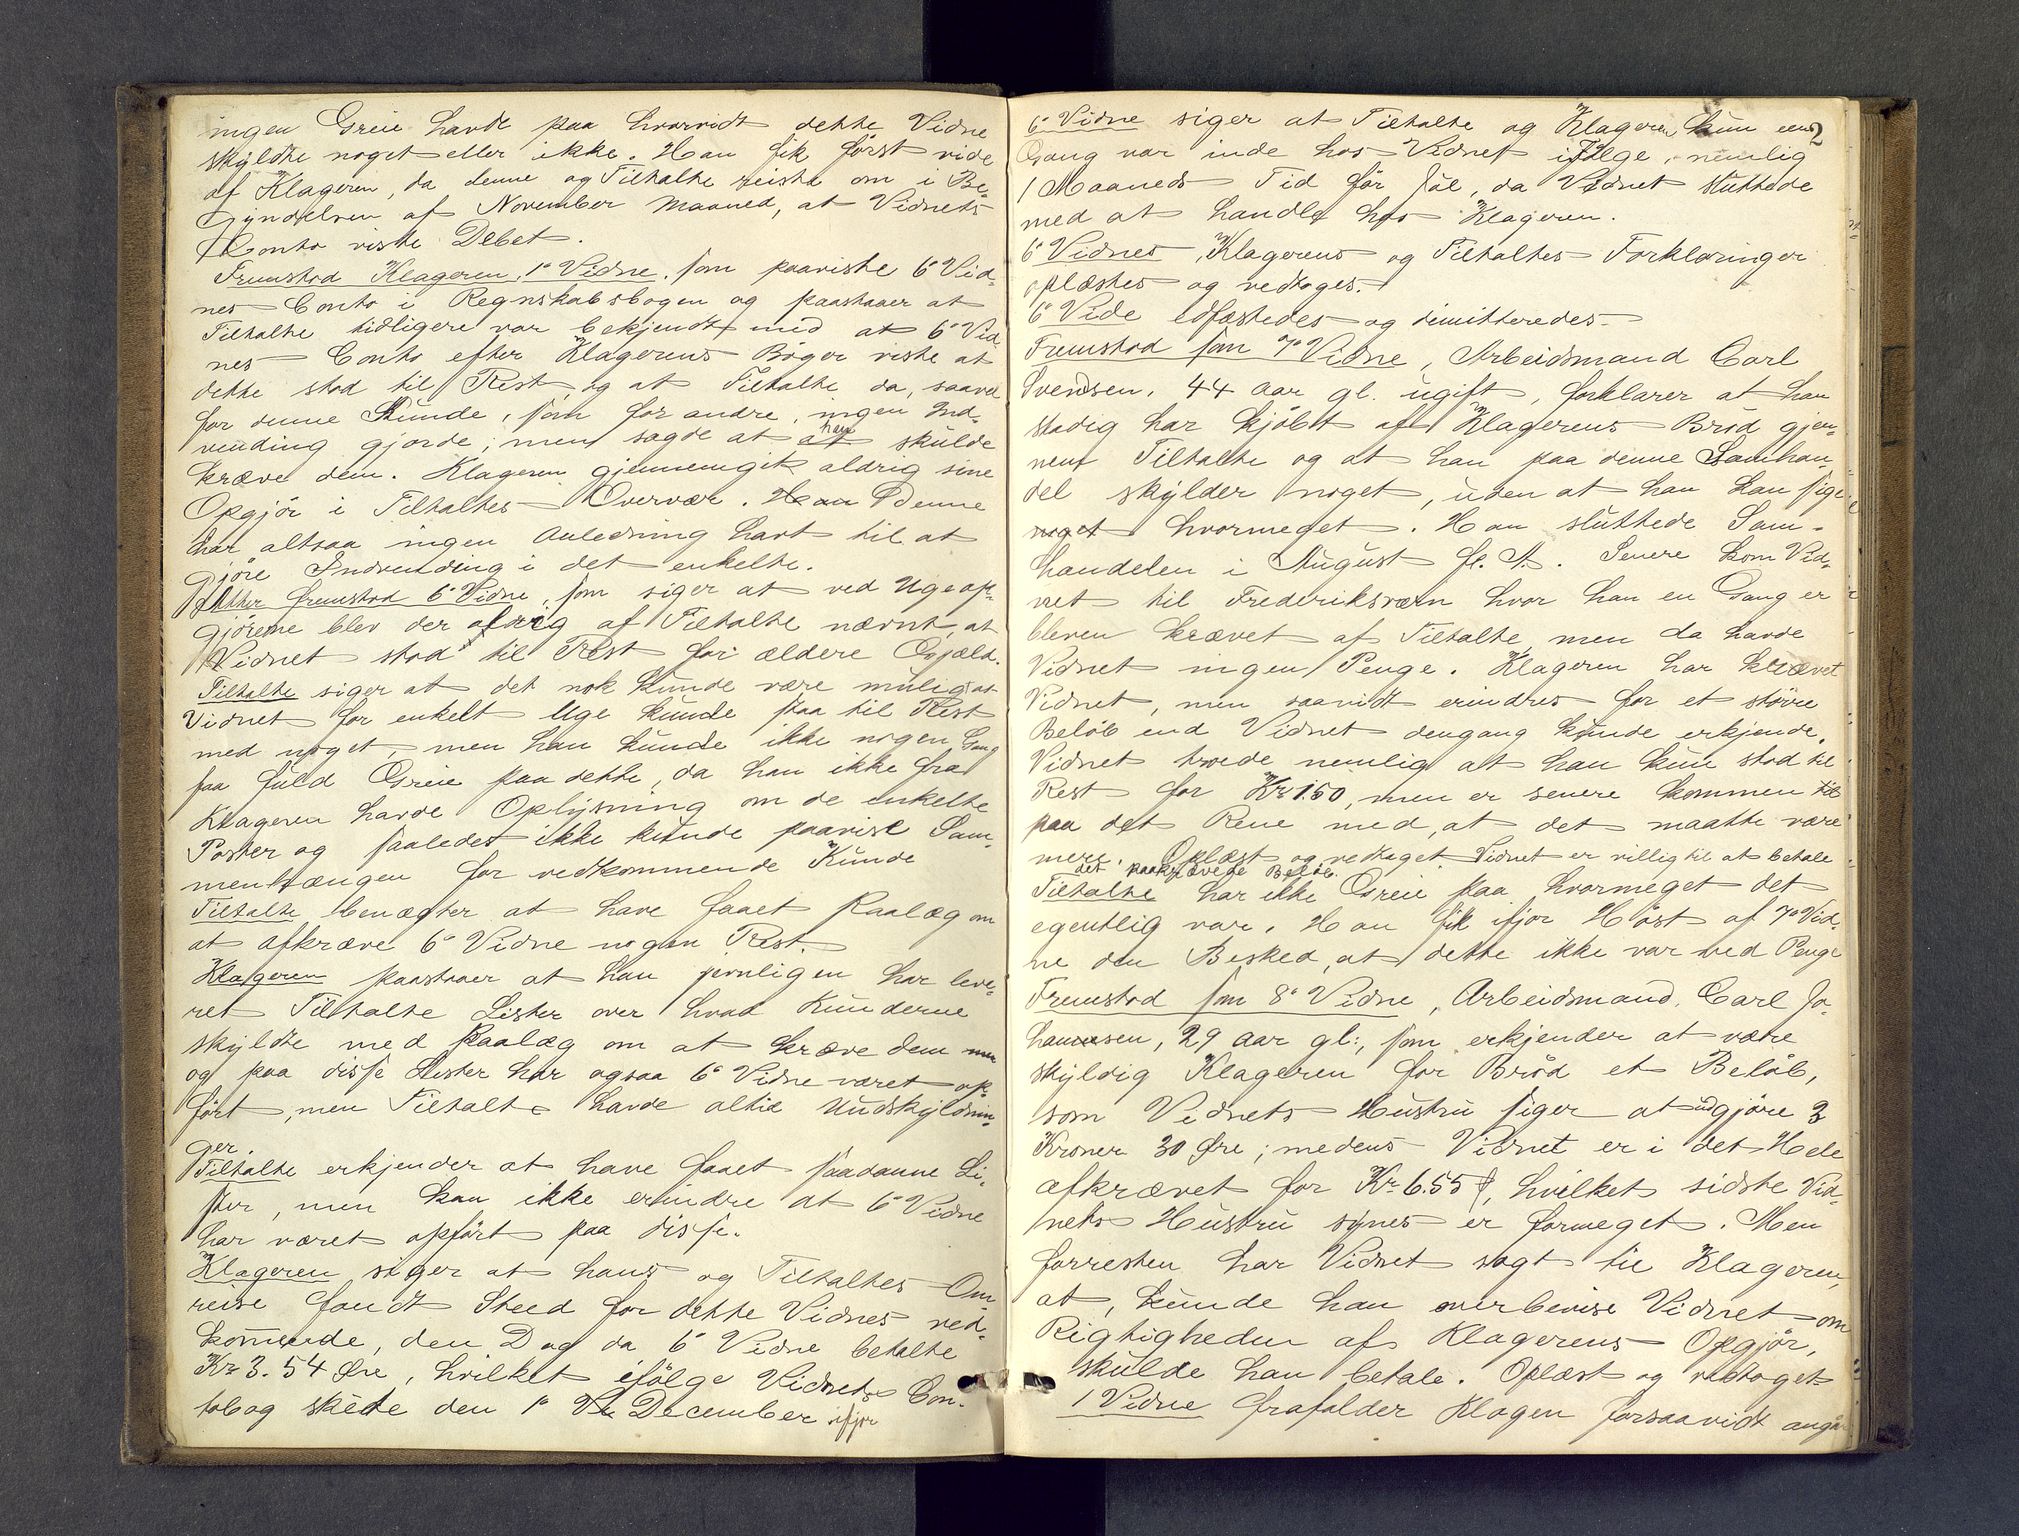 ingen Greie havde paa hvorvidt dette Vidne
skyldte noget eller ikke. Han fik först vide
af Klageren, da denne og Tiltalte reiste om i Be-
gyndelsen af November Maaned, at Vidnets
Conto viste Debet.
Fremstod Klageren, 1e Vidne, som paaviste 6e Vid-
nes Conto i Regnskabsbogen og paastaaer at
Tiltalte tidligere var bekjendt med at 6e Vid-
nes Conto efter Klagerens Bøger viste at
dette stod til Rest og at Tiltalte da, saavel
for denne Kunde, som for andre, ingen Ind-
vending gjorde; men sagde at at han skulde
kræve dem. Klageren gjennemgik aldrig sine
Opgjör i Tiltaltes Overvær. Han Denne
har altsaa ingen Anledning havt til at
gjöre Indvending i det enkelte.
Atter fremstod 6e Vidne, som siger at ved Ugeop-
gjörene blev der aldrig af Tiltalte nævnt, at
Vidnet stod til Rest for ældere Gjæld.
Tiltalte siger at det nok kunde være mulig at
Vidnet for enkelt Uge kunde staa til Rest
med noget, men han kunde ikke nogen Gang
faa fuld Greie paa dette, da han ikke fra
Klageren havde Oplysning om de enkelte
Poster og saaledes ikke kunde paavise Sam-
menhængen for vedkommende Kunde
Tiltalte benægter at have faaet Paalæg om
at afkræve 6e Vidne nogen Rest.
Klageren paastaaer at han jevnligen har leve-
ret Tiltalte Lister over hvad Kunderne
skyldte med Paalæg om at kræve dem
og paa disse Lister har ogsaa 6e Vidne været op-
fört, men Tiltalte havde altid Undskyldnin-
ger.
Tiltalte erkjender at have faaet saadanne Li-
ster, men kan ikke erindre at 6e Vidne
har været opfört paa disse.
Klageren siger at hans og Tiltaltes Om-
reise fandt Sted for dette Vidnes ved-
kommende, den Dag da 6e Vidne betalte
Kr 3.54 Øre, hvilket ifölge Vidnets Con-
tobog skede den 1e December ifjor
2
6e Vidne siger at Tiltalte og Klageren kun een
Gang var inde hos Vidnet ifölge, nemlig
1 Maaneds Tid för Jul, da Vidnet sluttede
med at handle hos Klageren.
6e Vidnes, Klagerens og Tiltaltes Forklaringer
oplæstes og vedtoges.
6e Vide edfæstedes og dimitteredes.
Fremstod som 7e Vidne, Arbeidsmand Carl
Svendsen, 44 Aar gl. ugift, forklarer at han
stadig har kjöbt af Klagerens Bröd gjen-
nem Tiltalte og at han paa denne Samhan-
del skylder noget, uden at han kan sige
noget hvormeget. Han sluttede Sam-
handelen i August f. A. Senere kom Vid-
net til Frederiksværn hvor han en Gang er
bleven krævet af Tiltalte, men da havde
Vidnet ingen Penge. Klageren har krævet
Vidnet, men saavidt erindres for et större
Belöb end Vidnet dengang kunde erkjende.
Vidnet troede nemlig at han kun stod til
Rest for Kr 1.50, men er senere kommen til
paa det Rene med, at det maatte være
mere. Oplæst og vedtaget. Vidnet er villig til at betale
det paakrævede Belöb.
Tiltalte har ikke Greie paa hvormeget det
egentlig var. Han fik ifjor Höst af 7e Vid-
ne den Besked, at dette ikke var ved Penge
Fremstod som 8e Vidne, Arbeidsmand Carl Jo-
hannesen, 29 Aar gl., som erkjender at være
skyldig Klageren for Bröd et Belöb,
som Vidnets Hustru siger at udgjöre 3
Kroner 30 Øre; medens Vidnet er i det Hele
afkrævet for Kr 6.55, hvilket sidste Vid-
nets Hustru synes er formeget. Men
forresten har Vidnet sagt til Klageren,
at, kunde han overbevise Vidnet om
Rigtigheden af Klagerens Opgjör,
skulde han betale. Oplæst og vedtaget
1 Vidne frafalder Klagen forsaavidt angaar